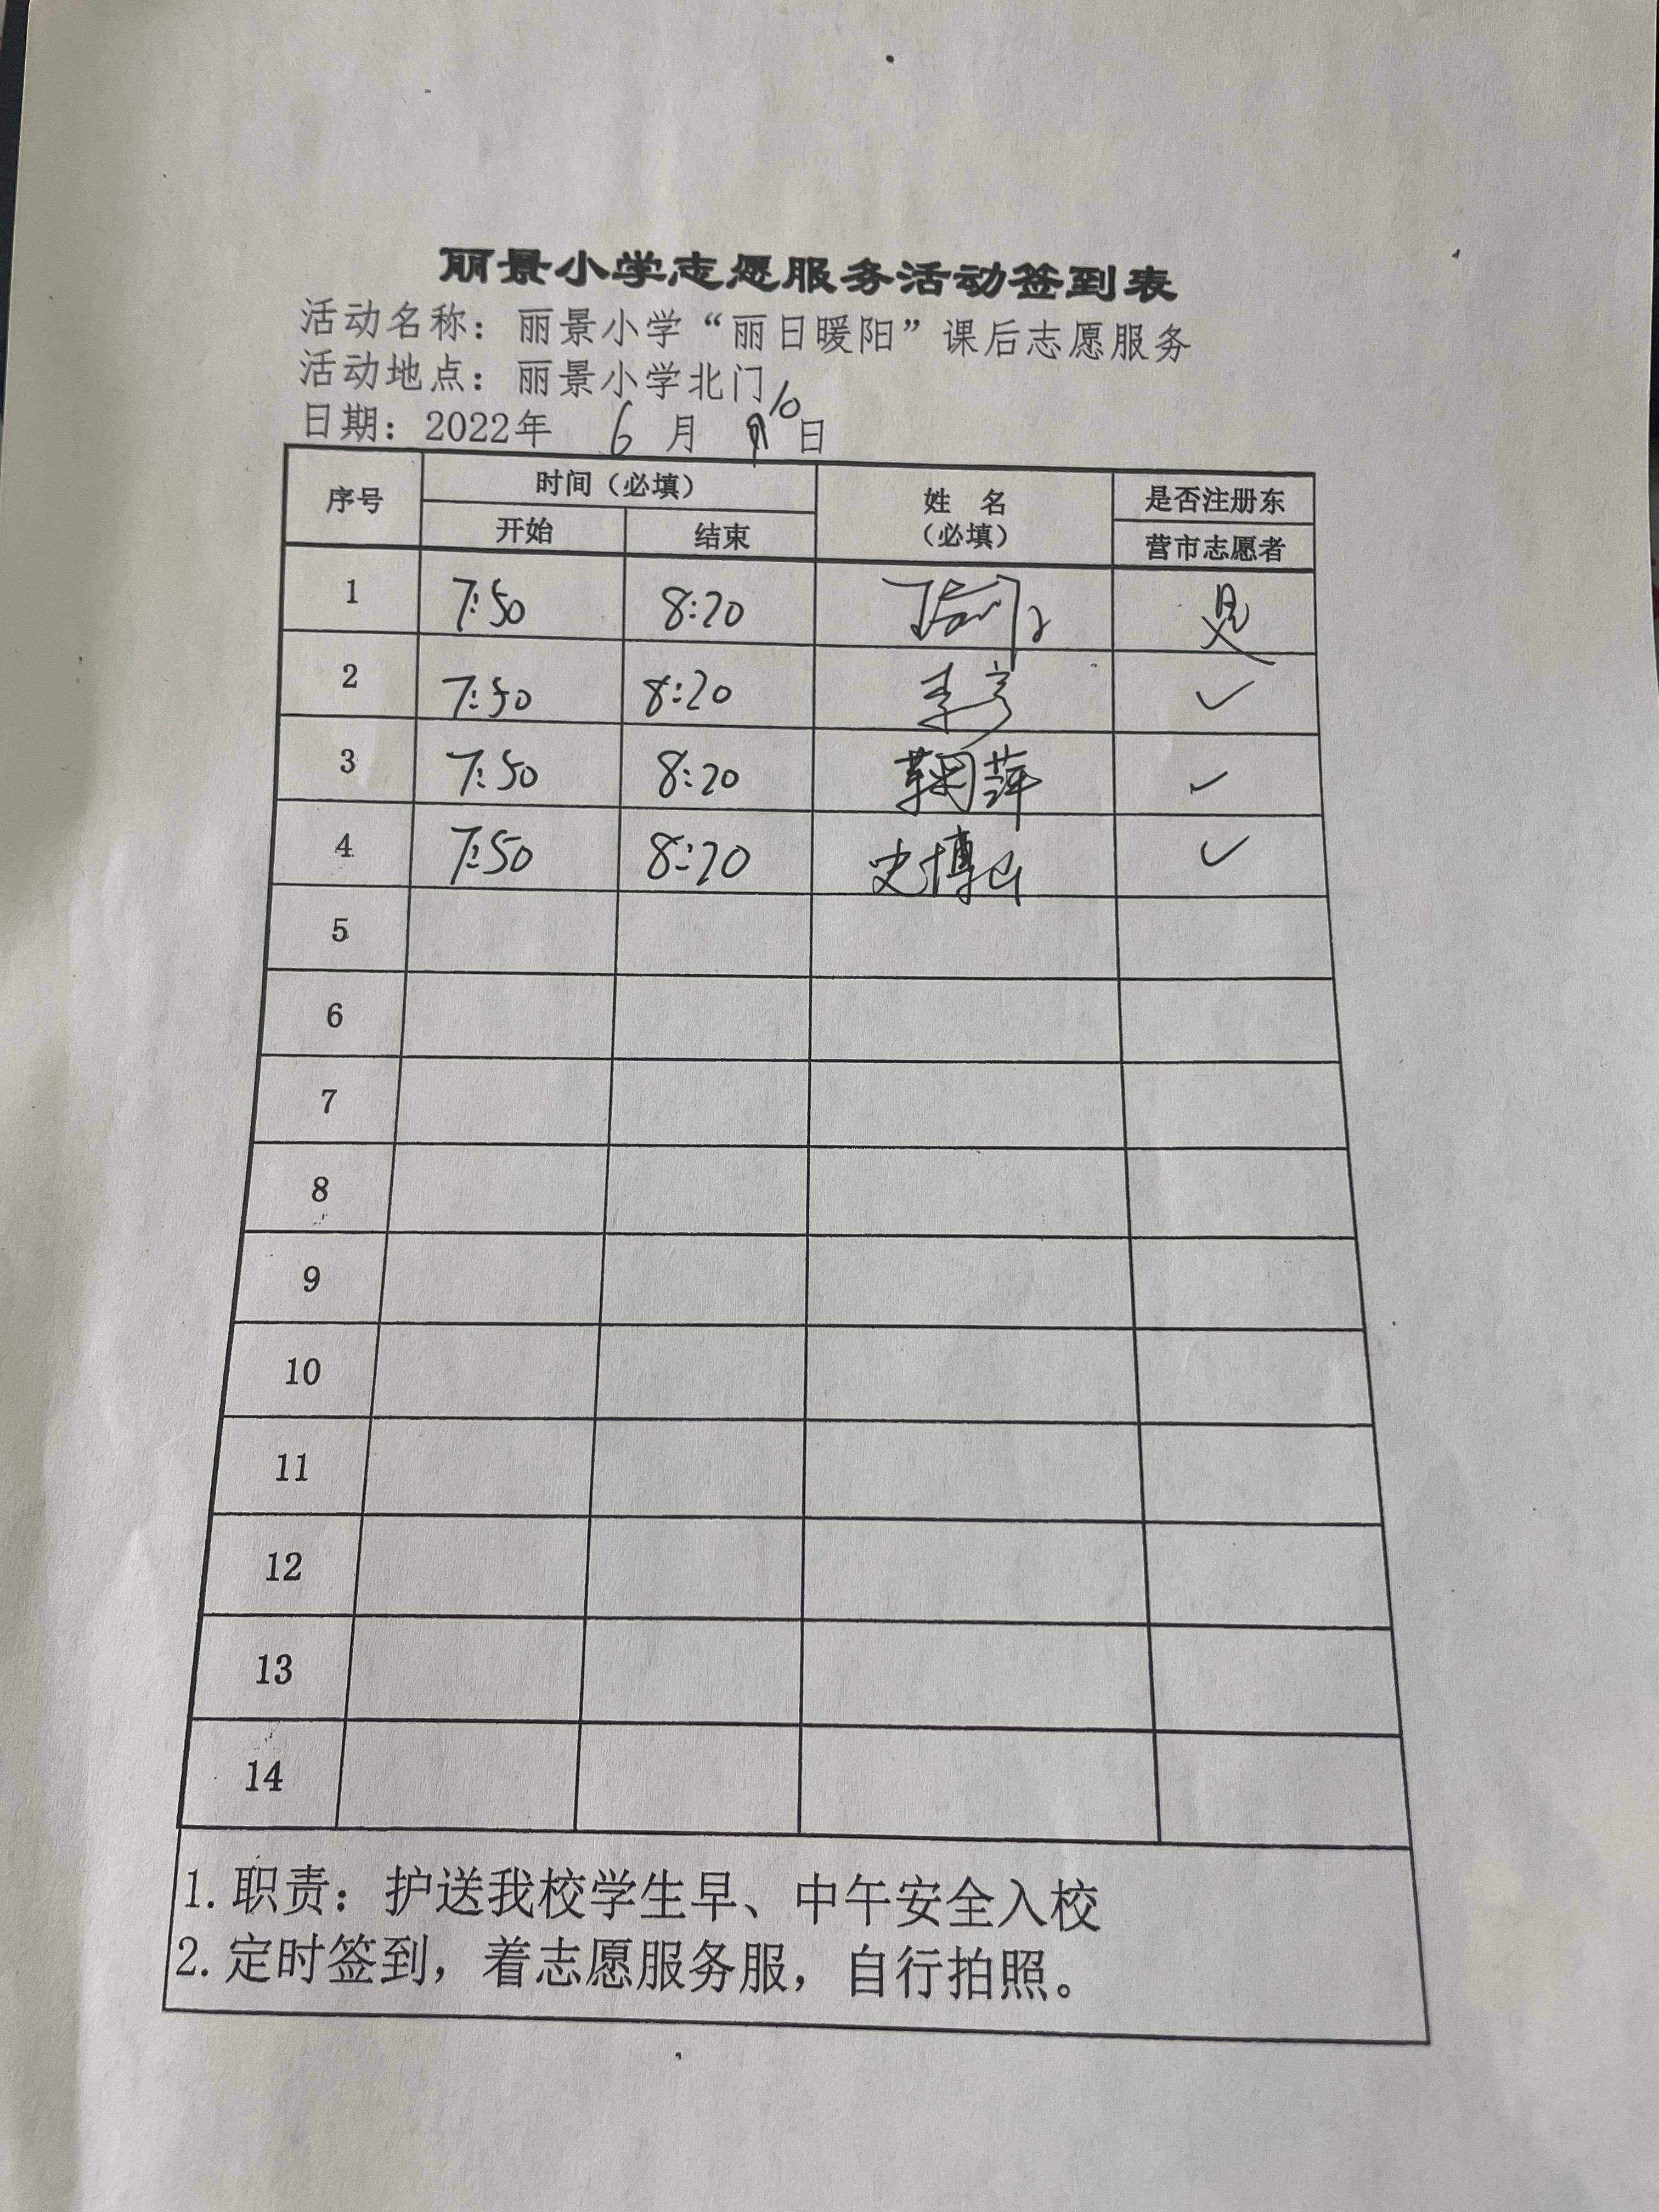 丽景小学志愿服务活动签到表
活动名称：丽景小学“丽日暖阳”课后志愿服务
活动地点：丽景小学北门
日期：2022年 6 月 10 日
序号 时间（必填） 姓 名（必填） 是否注册东营市志愿者
开始 结束
1 7:50 8:20 是
2 7:50 8:20 李 ✓
3 7:50 8:20 鞠萍 ✓
4 7:50 8:20 史博 ✓
5
6
7
8
9
10
11
12
13
14
1.职责：护送我校学生早、中午安全入校
2.定时签到，着志愿服务服，自行拍照。